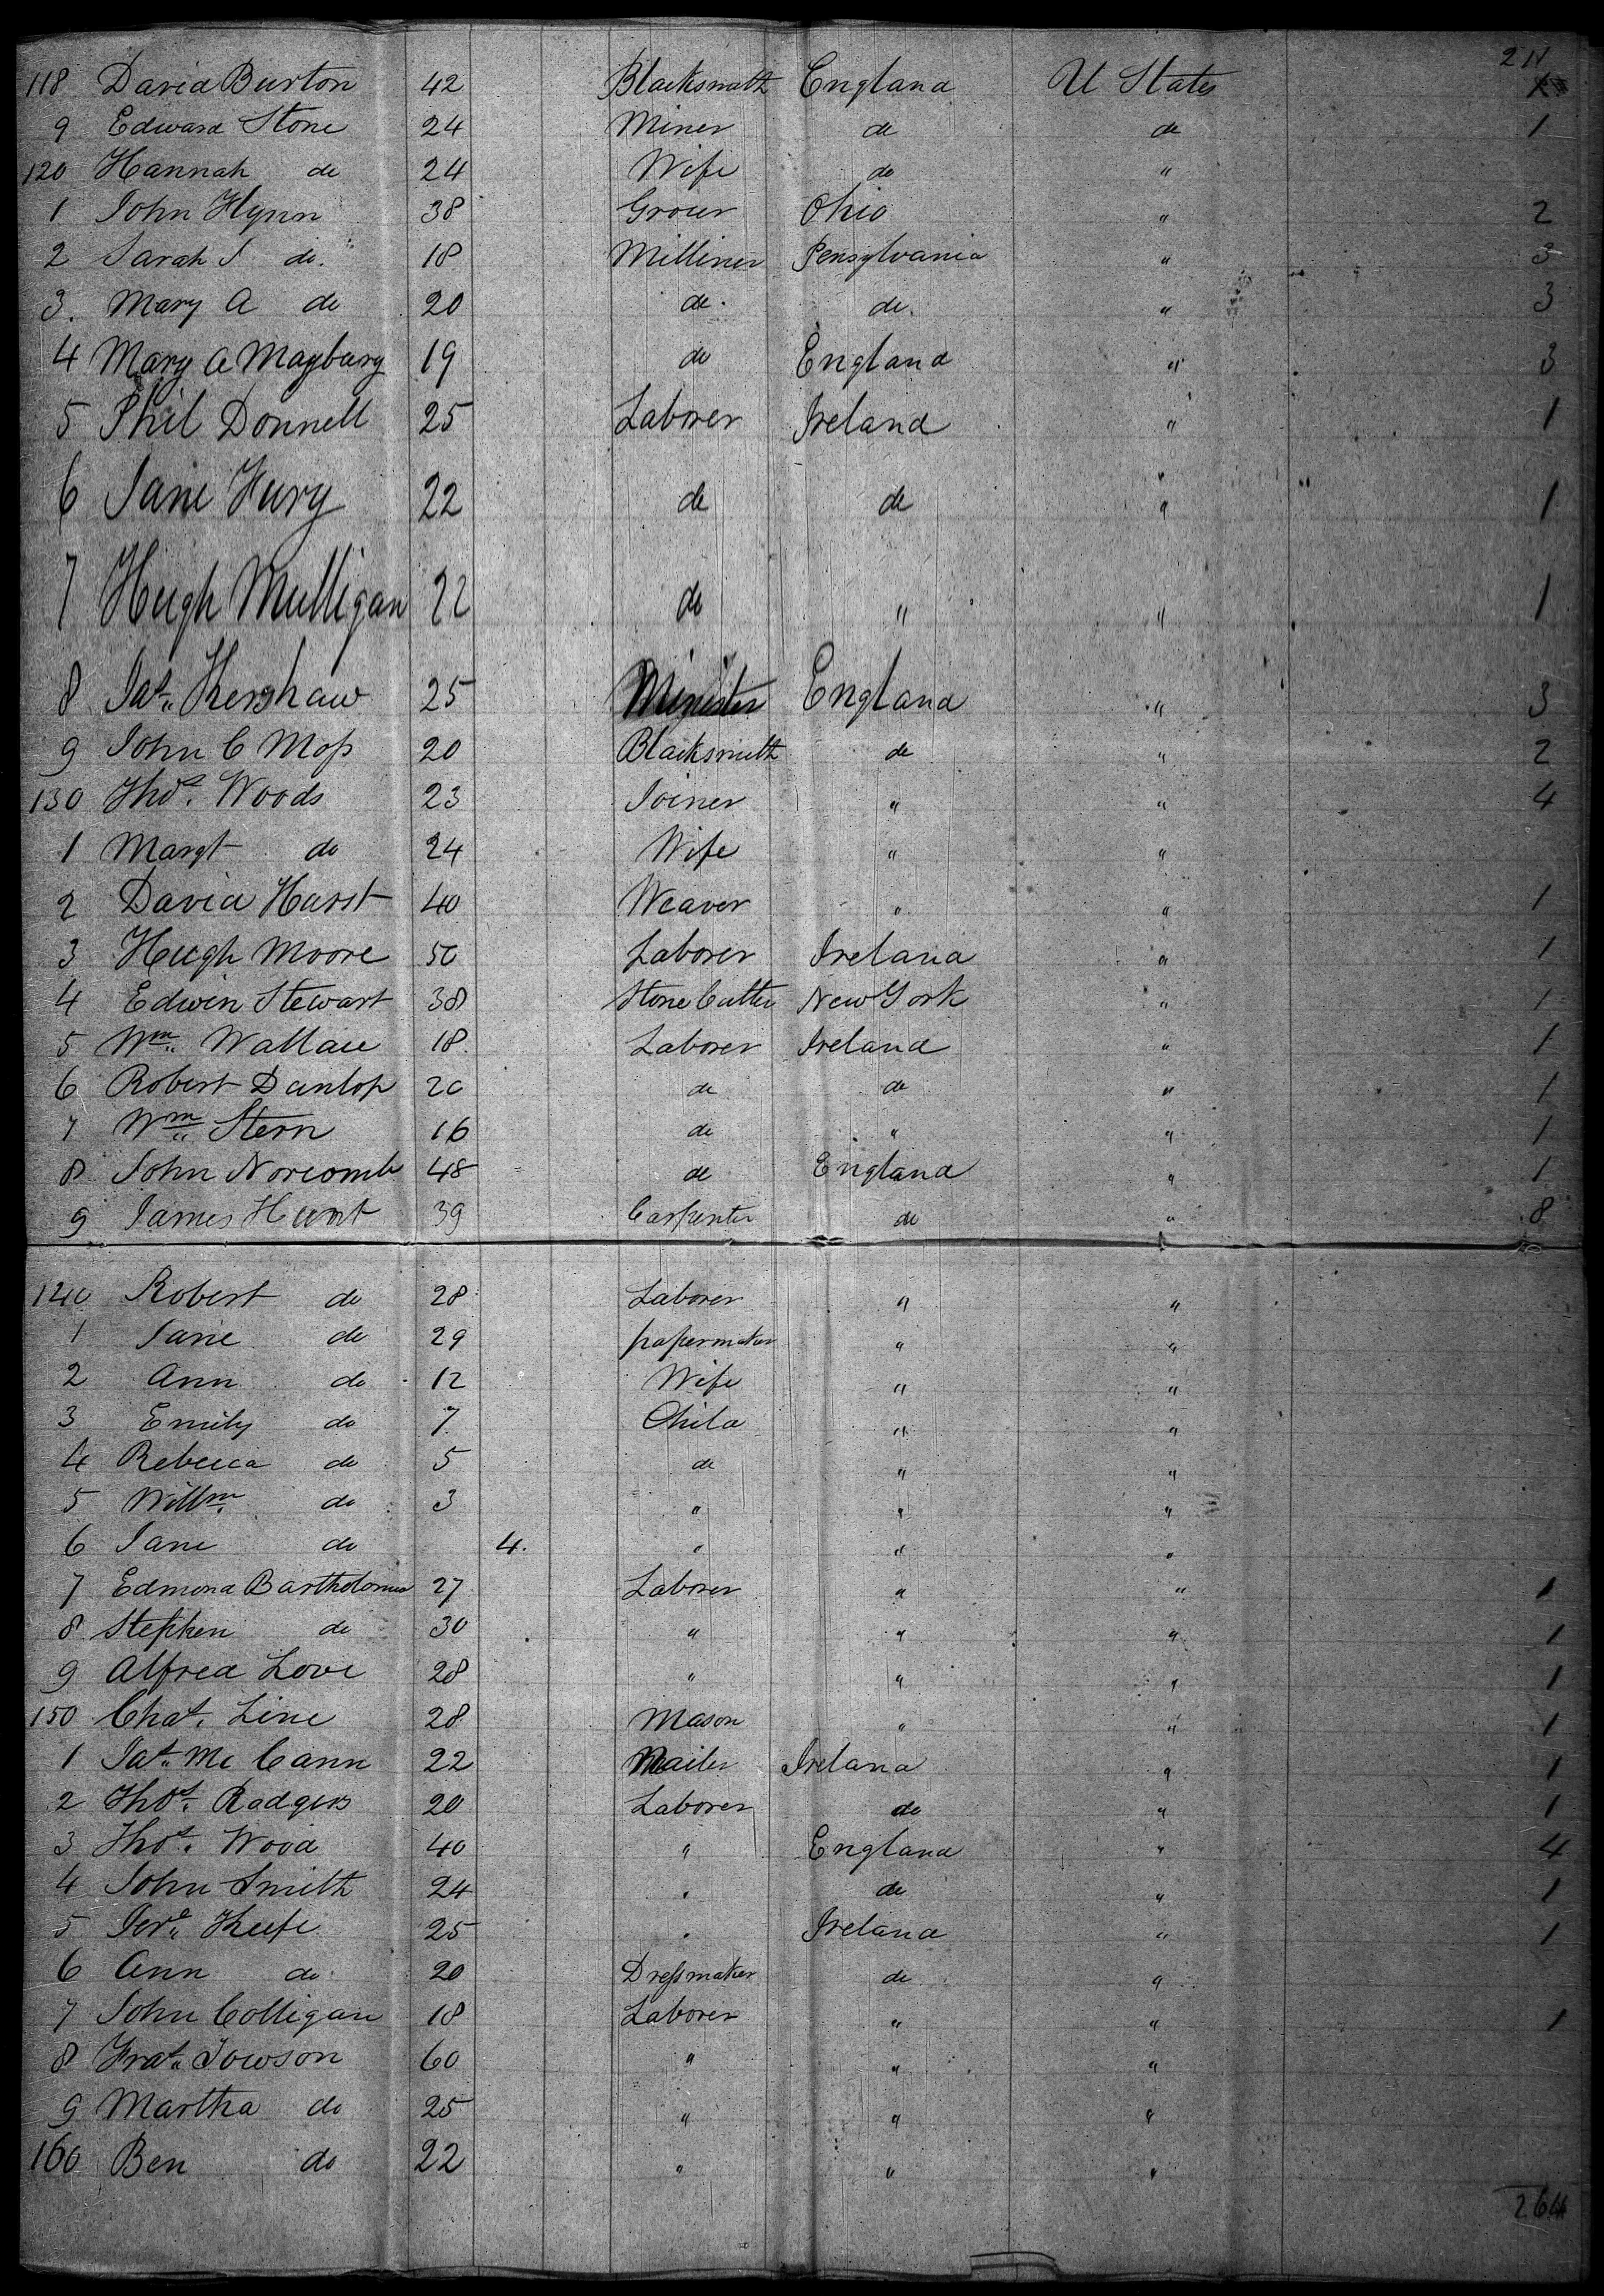 211
118 David Burton 42 Blacksmith England U States
9 Edward Stone 24 Miner do do 1
120 Hannah do 24 Wife do "
1 John Flynn 38 Grocer Ohio " 2
2 Sarah J do 18 Milliner Pensylvania " 3
3. Mary A do 20 do do " 3
4 Mary A Maybury 19 do England " 3
5 Phil Donnell 25 Laborer Ireland " 1
6 Jane Fury 22 do do " 1
7 Hugh Mulligan 22 do " " 1
8 Jas. Kershaw 25 Minister England " 3
9 John C Moss 20 Blacksmith do " 2
130 Thos. Woods 23 Joiner " " 4
1 Margt do 24 Wife " "
2 David Harst 40 Weaver " " 1
3 Hugh Moore 50 Laborer Ireland " 1
4 Edwin Stewart 38 Stone Cutter New York " 1
5 Wm. Wallace 18 Laborer Ireland " 1
6 Robert Dunlop 20 do do " 1
7 Wm. Stern 16 do " " 1
8 John Norcomb 48 do England " 1
9 James Hunt 39 Carpenter do " 8
140 Robert do 28 Laborer " "
1 Jane do 29 papermaker " "
2 Ann do 12 Wife " "
3 Emily do 7 Child " "
4 Rebecca do 5 do " "
5 Willm. do 3 " " "
6 Jane do 4. " " "
7 Edmond Bartholomew 27 Laborer " " 1
8 Stephen do 30 " " " 1
9 Alfred Love 28 " " " 1
150 Chas. Line 28 Mason " " 1
1 Jas. Mc Cann 22 Ireland " 1
2 Thos. Rodgers 20 Laborer do " 1
3 Thos. Wood 40 " England " 4
4 John Smith 24 " do " 1
5 Jere. Keefe 25 " Ireland " 1
6 Ann do 20 Dressmaker do "
7 John Colligan 18 Laborer " " 1
8 Fras. Towson 60 " " "
9 Martha do 25 " " "
160 Ben do 22 " " "
264